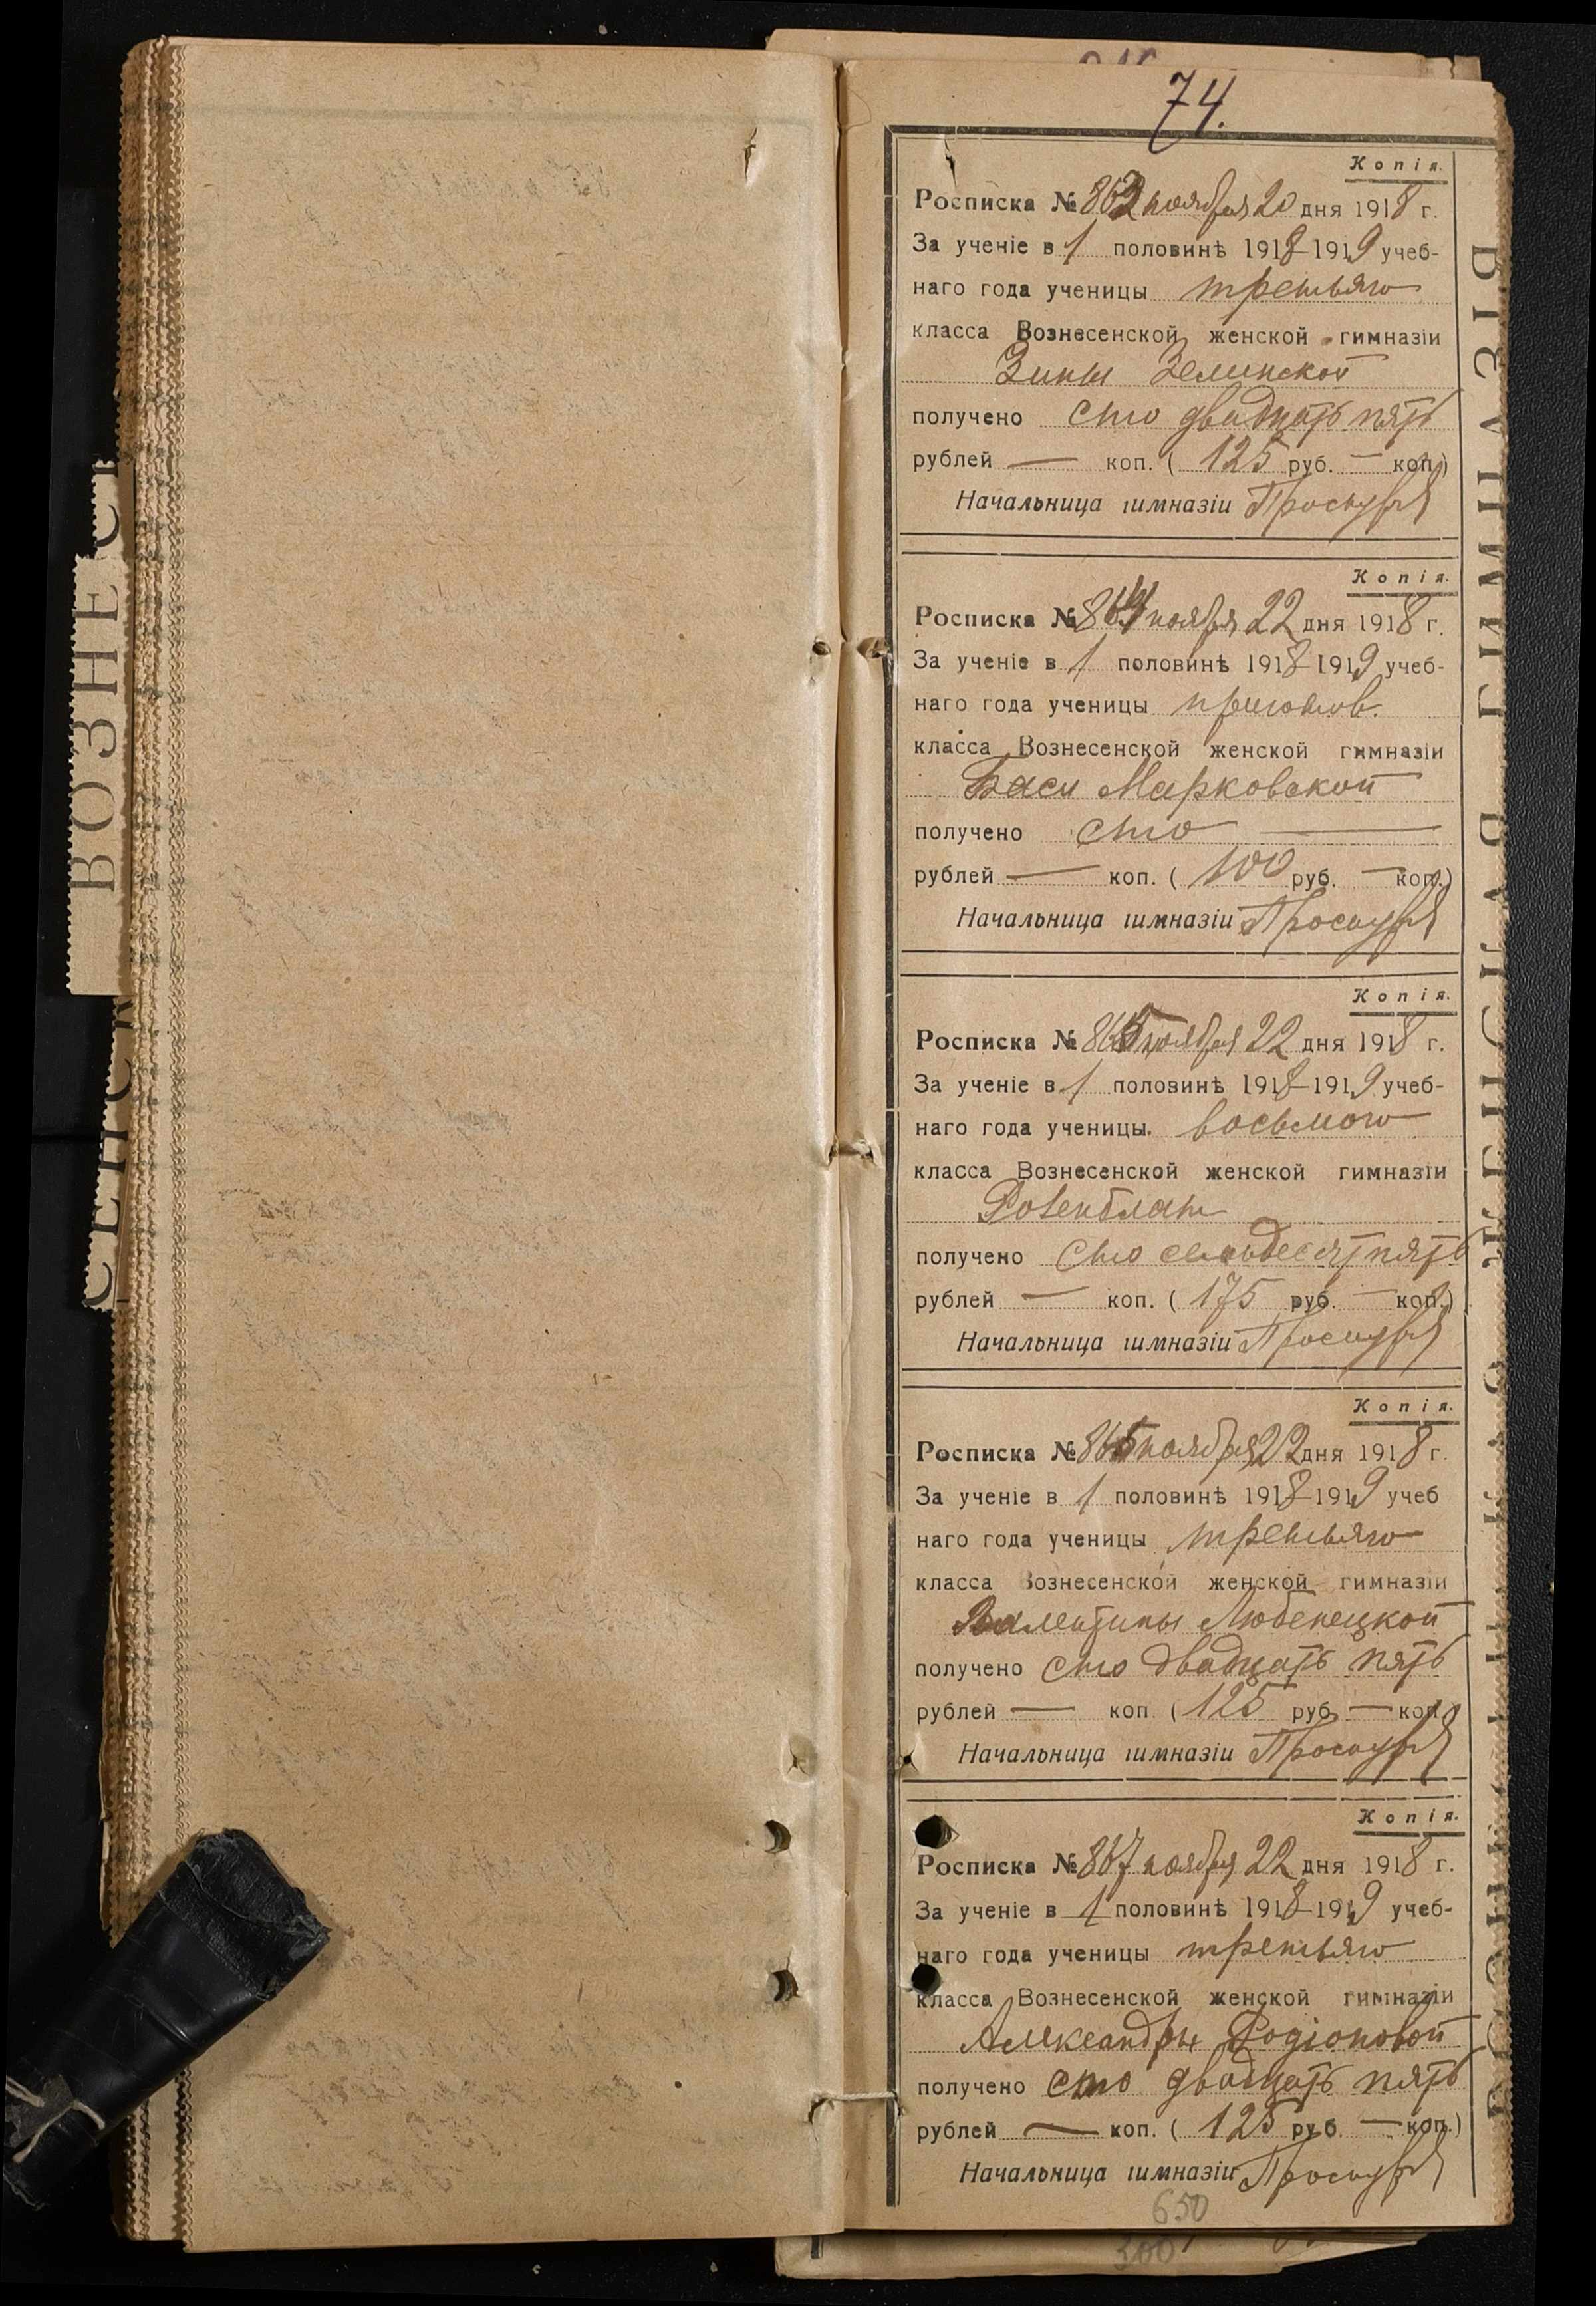 74.
Копія.
Росписка № 863 ноября 20 дня 1918 г.
За ученіе в 1 половинѣ 1918-1919 учеб-
наго года ученицы третьяго
класса Вознесенской женской гимназіи
Зины Зелинской
получено сто двадцать пять
рублей — коп. ( 125 руб. — коп.)
Начальница гимназіи
Копія.
Росписка № 864 ноября 22 дня 1918 г.
За ученіе в 1 половинѣ 1918-1919 учеб-
наго года ученицы приготов.
класса Вознесенской женской гимназіи
Баси Марковской
получено сто —
рублей — коп. ( 100 руб. — коп.)
Начальница гимназіи
Копія.
Росписка № 865 ноября 22 дня 1918 г.
За ученіе в 1 половинѣ 1918-1919 учеб-
наго года ученицы восьмого
класса Вознесенской женской гимназіи
Розенблат
получено сто семьдесят пять
рублей — коп. ( 175 руб. — коп.)
Начальница гимназіи
Копія.
Росписка № ноября 22 дня 1918 г.
За ученіе в 1 половинѣ 1918-1919 учеб
наго года ученицы третьяго
класса Вознесенской женской гимназіи
Валентины Любенецкой
получено сто двадцать пять
рублей — коп. ( 125 руб. — коп.
Начальница гимназіи
Копія.
Росписка № 867 ноября 22 дня 1918 г.
За ученіе в 1 половинѣ 1918-1919 учеб-
наго года ученицы третьяго
класса Вознесенской женской гимназіи
Александры Родіоновой
получено сто двадцать пять
рублей — коп. ( 125 руб. — коп.)
Начальница гимназіи
650
300
ВОЗНЕ